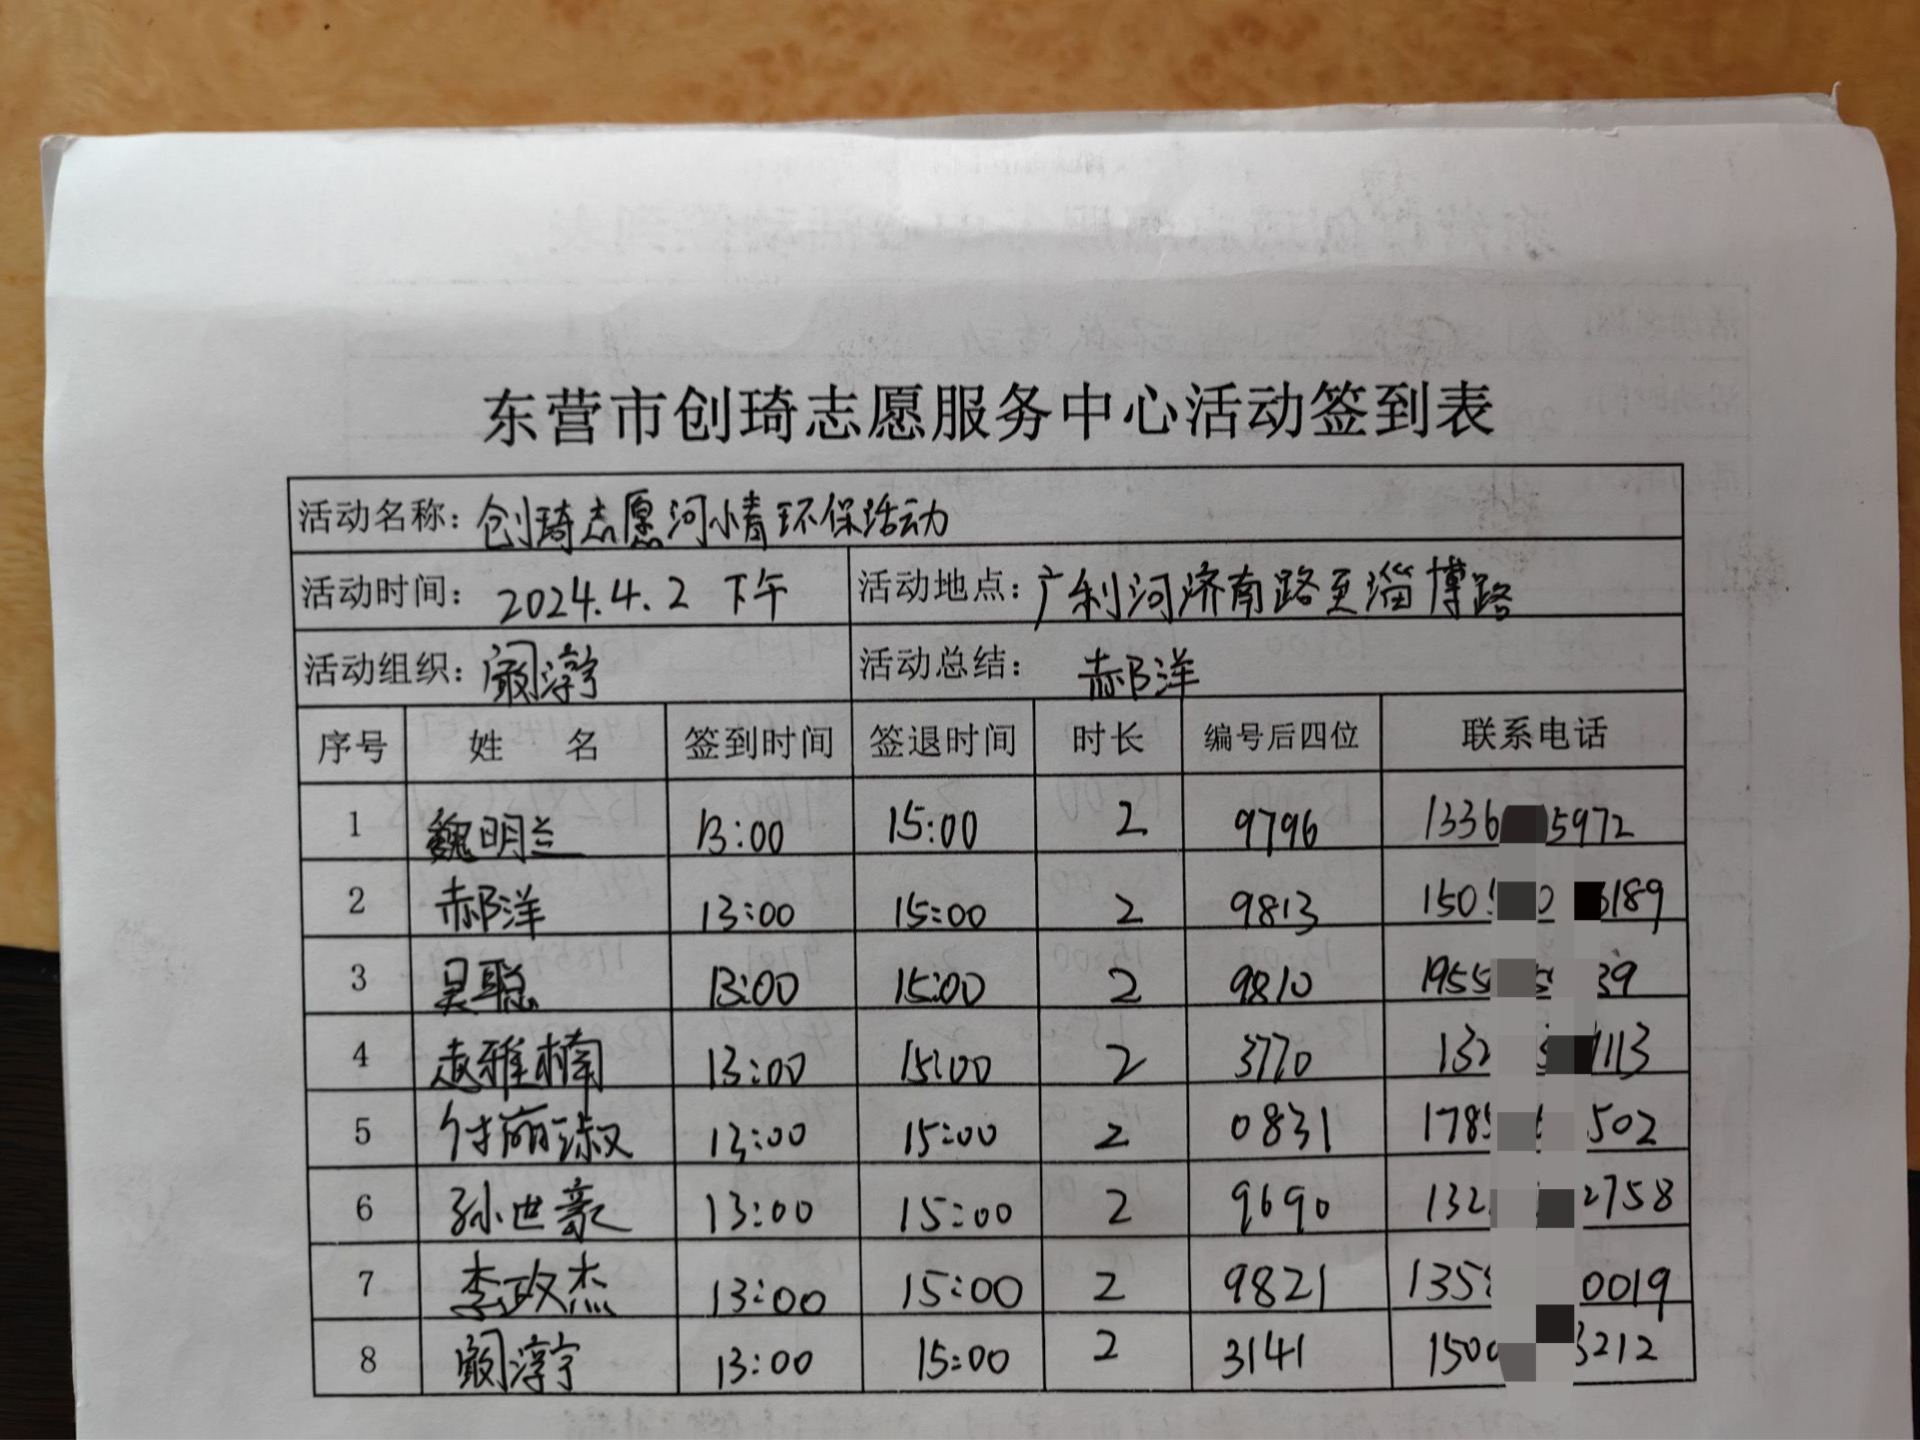 东营市创琦志愿服务中心活动签到表
活动名称：创琦志愿河小青环保活动
活动时间：2024.4.2 下午 活动地点：广利河济南路至淄博路
活动组织：阚淳宇 活动总结：郝洋
序号 姓 名 签到时间 签退时间 时长 编号后四位 联系电话
1 魏明兰 13:00 15:00 2 9796 1336 5972
2 郝洋 13:00 15:00 2 9813 150 6189
3 吴聪 13:00 15:00 2 9810 1955 39
4 赵雅楠 13:00 15:00 2 3770 132 1113
5 付丽淑 13:00 15:00 2 0831 178 502
6 孙世豪 13:00 15:00 2 9690 132 2758
7 李政杰 13:00 15:00 2 9821 135 0019
8 阚淳宇 13:00 15:00 2 3141 150 3212